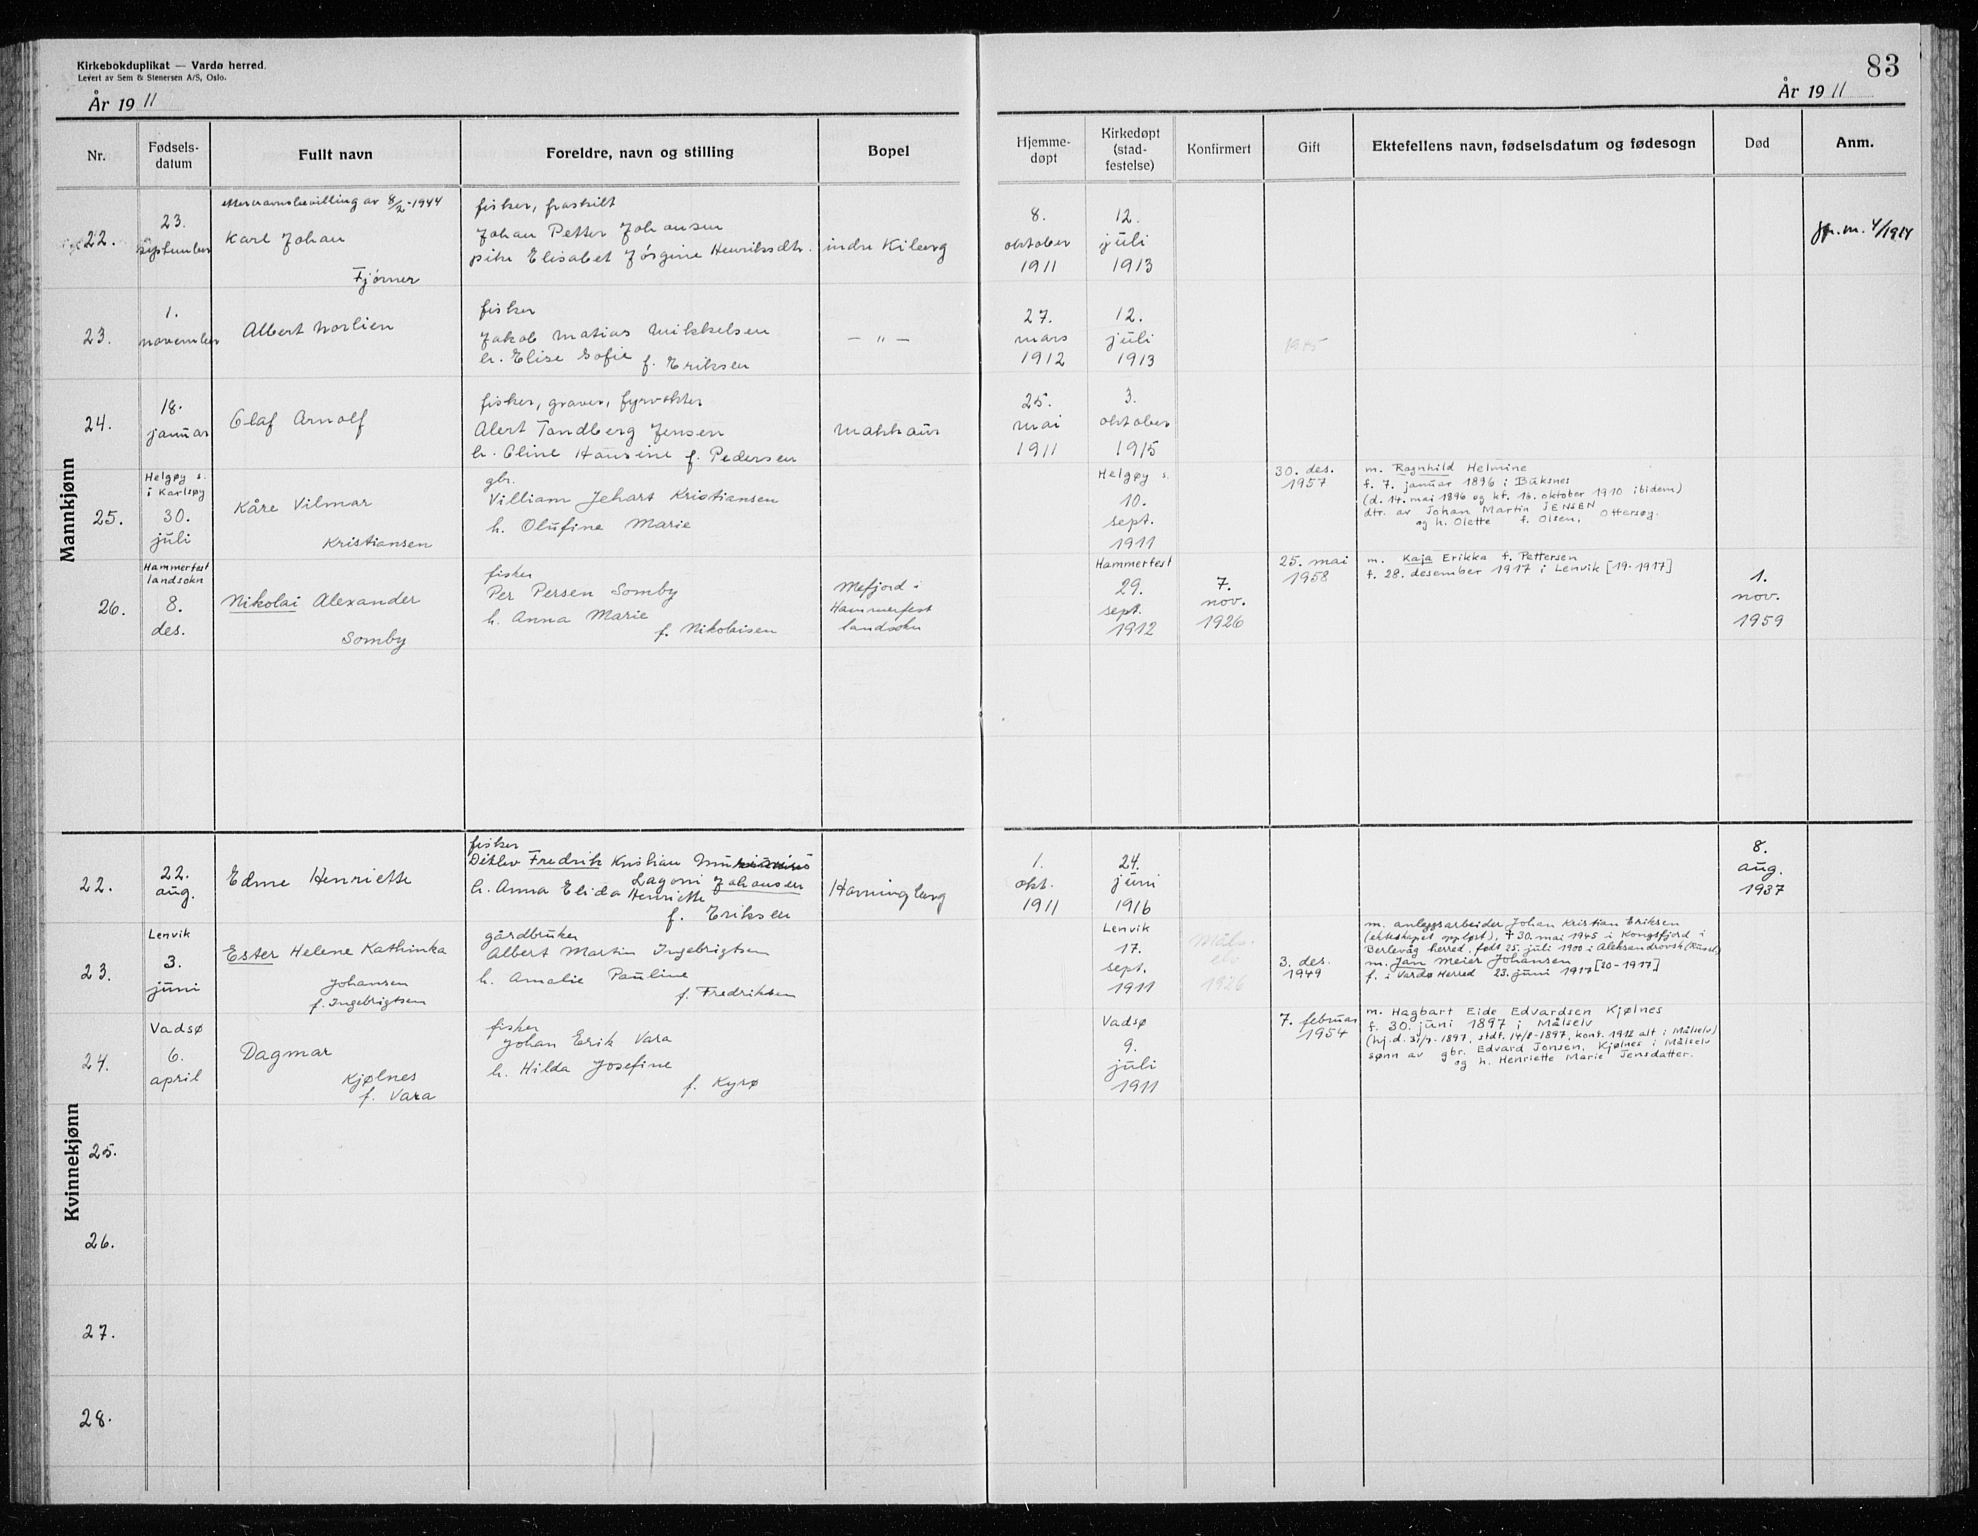 Kirkebokduplikat — Vardø herred.
Levert av Sem & Stenersen A/S, Oslo.
År 1911
83
År 1911
Nr.
Fødsels-
datum
Fullt navn
Foreldre, navn og stilling
Bopel
Hjemme-
døpt
Kirkedøpt
(stad-
festelse)
Konfirmert
Gift
Ektefellens navn, fødselsdatum og fødesogn
Død
Anm.
Mannkjønn
22.
23.
september
etter navnebevilling av 8/2-1944
Karl Johan
Fjørner
fisker, fraskilt
Johan Petter Johansen
pike Elisabet Jørgine Henriksdtr.
indre Kiberg
8.
oktober
1911
12.
juli
1913
jfr. m. 4/1914
23.
1.
november
Albert Norlien
fisker
Jakob Matias Mikkelsen
h. Elise Sofie f. Eriksen
— " —
27.
mars
1912
12.
juli
1913
24.
18.
januar
Olaf Arnolf
fisker, graver, fyrvokter
Alert Tandberg Jensen
h. Oline Hansine f. Pedersen
Makkaur
25.
mai
1911
3.
oktober
1915
25.
Helgøy s.
i Karlsøy
30.
juli
Kåre Vilmar
Kristiansen
gbr.
Villiam Jehart Kristiansen
h. Olufine Marie
Helgøy s.
10.
sept.
1911
30. des.
1957
m. Ragnhild Helmine
f. 7. januar 1896 i Buksnes
(d. 14. mai 1896 og kf. 16. oktober 1910 ibidem)
dtr. av Johan Martin JENSEN
og h. Olette f. Olsen, Ottersøy.
26.
Hammerfest
landsokn
8.
des.
Nikolai Alexander
Somby
fisker
Per Persen Somby
h. Anna Marie
f. Nikolaisen
Mefjord i
Hammerfest
landsokn
Hammerfest
29.
sept.
1912
7.
nov.
1926
25. mai
1958
m. Kaja Erikka f. Pettersen
f. 28. desember 1917 i Lenvik [19-1917]
1.
nov.
1959
Kvinnekjønn
22.
22.
aug.
Edme Henriette
fisker
Ditlev Fredrik Kristian
Lagoni Johansen
h. Anna Elida Henriette
f. Eriksen
Horningberg
1.
okt.
1911
24.
juni
1916
8.
aug.
1937
23.
Lenvik
3.
juni
Ester Helene Kathinka
Johansen
f. Ingebrigtsen
gårdbruker
Albert Martin Ingebrigtsen
h. Amalie Pauline
f. Fredriksen
Lenvik
17.
sept.
1911
Måls-
elv
1926
3. des.
1949
m. anleggsarbeider Johan Kristian Eriksen
(ekteskapet oppløst), † 30. mai 1945 i Kongsfjord i
Berlevåg herred, født 25. juli 1900 i Aleksandrovsk (Russl.)
m. Jan Meier Johansen
f. i Vardø Herred 23. juni 1917 [20-1917]
24.
Vadsø
6.
april
Dagmar
Kjølnes
f. Vara
fisker
Johan Erik Vara
h. Hilda Josefine
f. Kyrø
Vadsø
9.
juli
1911
7. februar
1954
m. Hagbart Eide Edvardsen Kjølnes
f. 30. juni 1897 i Målselv
(hj.d. 31/7-1897, stdf. 14/8-1897, konf. 1912 alt i Målselv)
sønn av gbr. Edvard Jonsen, Kjølnes i Målselv
og h. Henriette Marie Jensdatter.
25.
26.
27.
28.